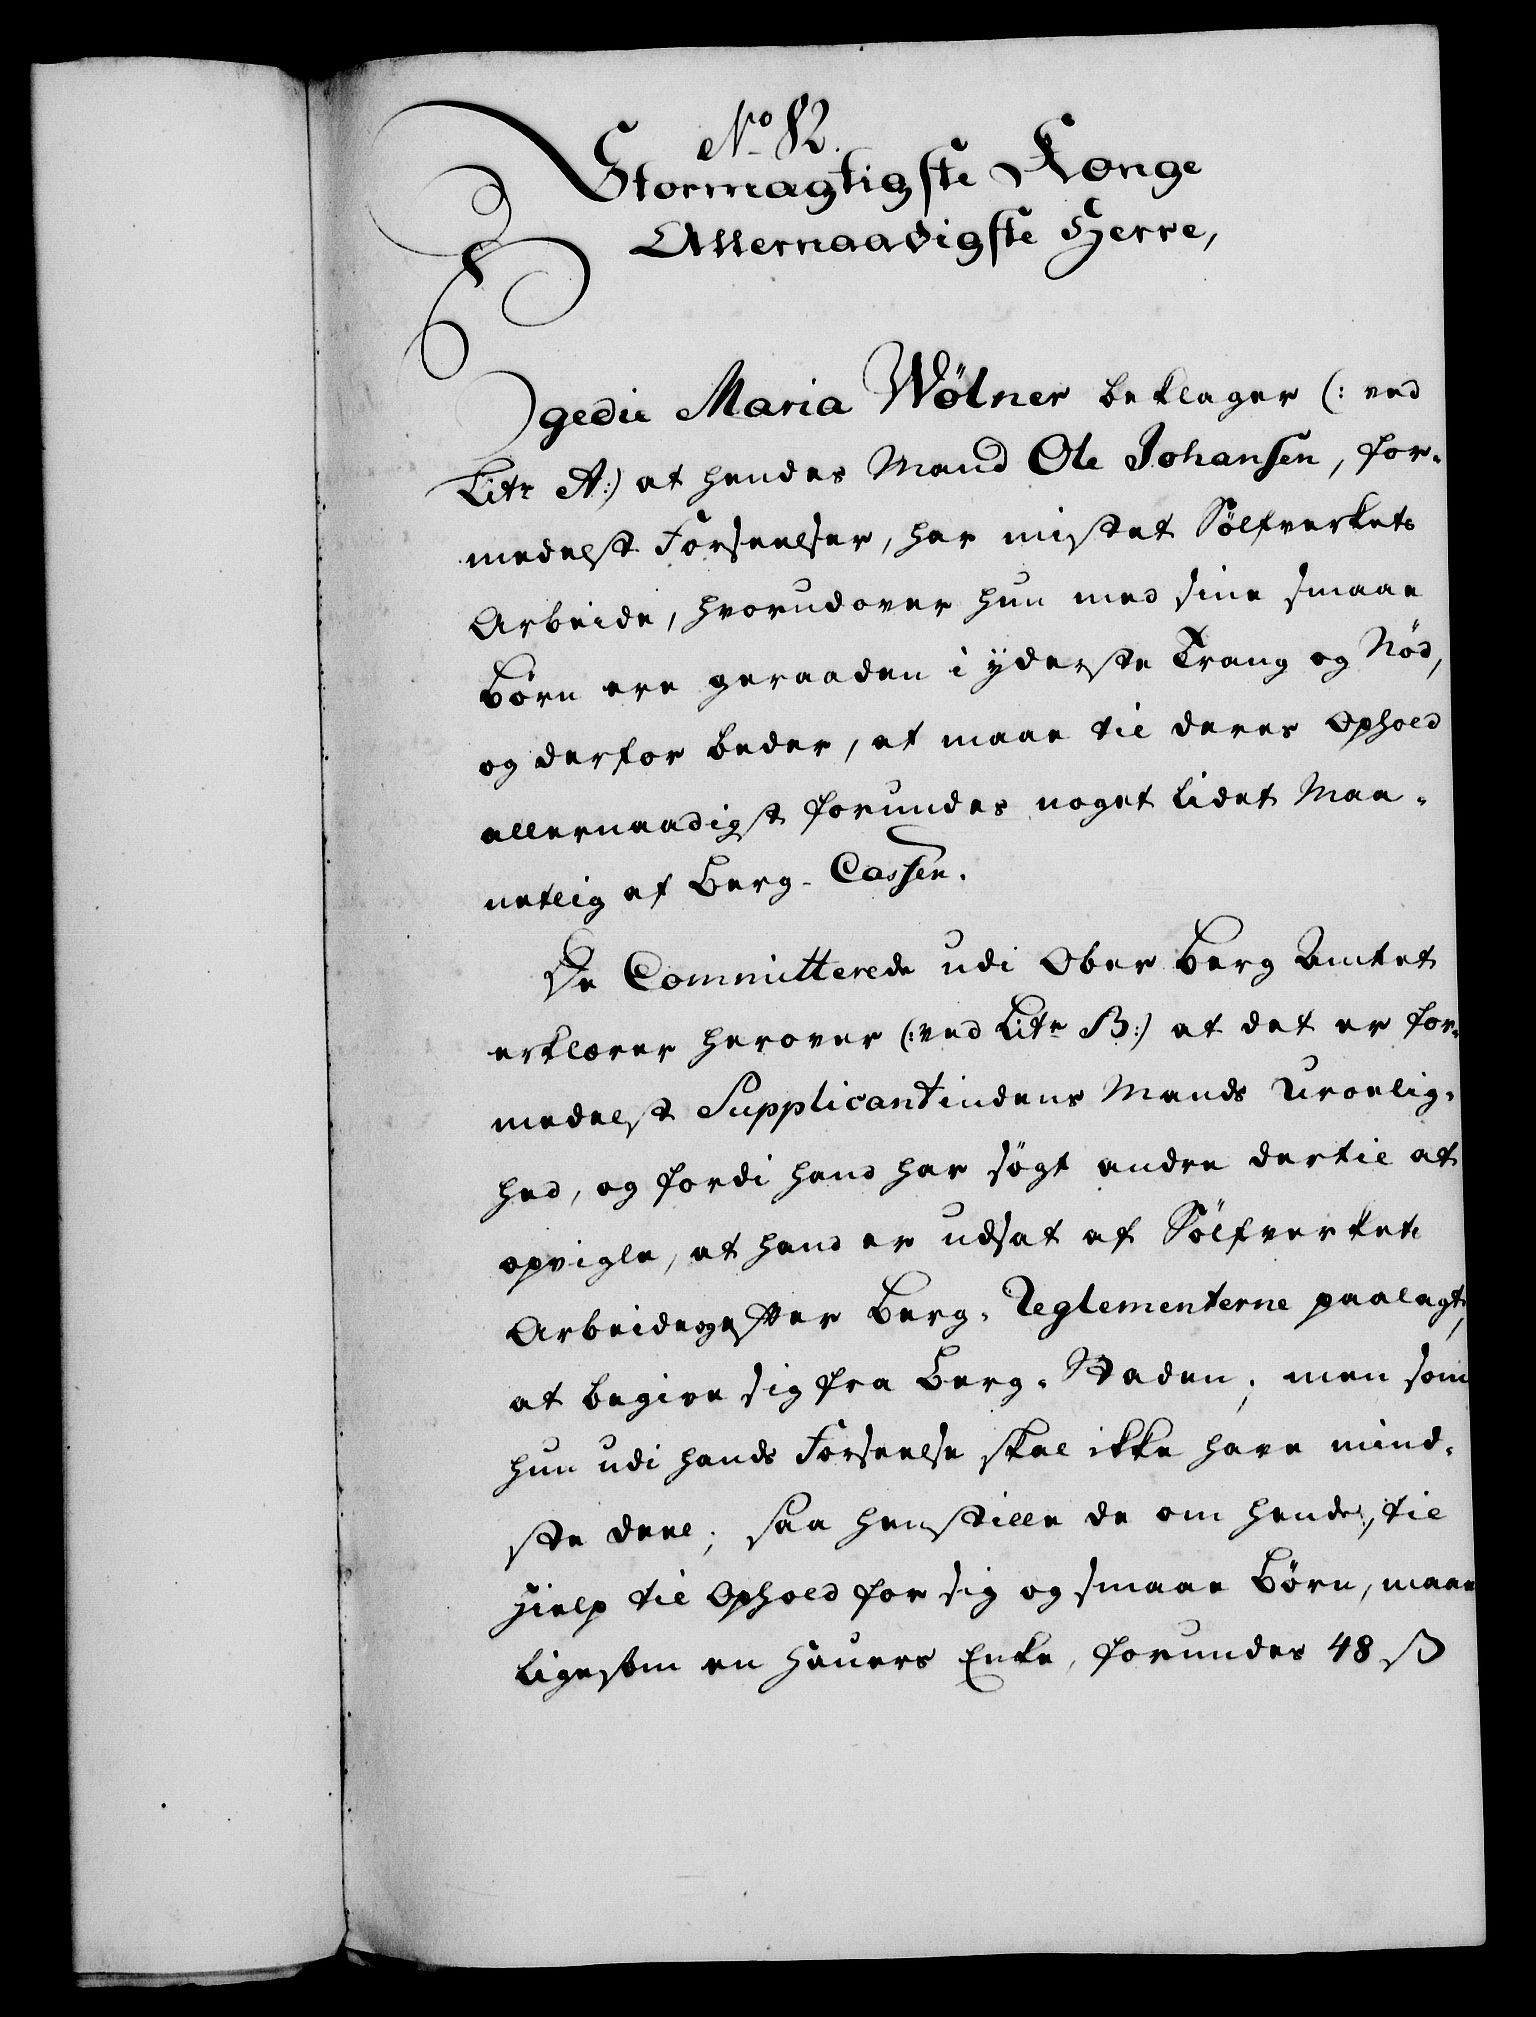 No 82.
Stormægtigste Konge
Allernaadigste Herre,
Egedie Maria Wölner beklager (: ved
Litr A:) at hendes Mand Ole Johansen, for-
medelst Forseelser, har mistet Sölfverkets
Arbeide, hvorudover hun med sine smaae
Börn ere geraaden i yderste Trang og Nöd,
og derfor beder, at maae til deres Ophold
allernaadigst forundes noget lidet Maa-
netlig af Berg-Cassen.
De Committerede udi Ober Berg Amtet
erklærer herover (: ved Litr B:) at det er for-
medelst Supplicantindens Mands Uroelig-
hed, og fordi hand har sögt andre dertil at
opvigle, at hand er udsat af Sölfverkets
Arbeide og efter Berg-Reglementerne paalagt,
at begive sig fra Berg-Staden; men som
hun udi hands Forseelse skal ikke have mind-
ste deel; saa henstille de om hende, til
Hielp til Ophold for sig og smaae Börn, maae
ligesom en Hauers Enke, forundes 48 ß